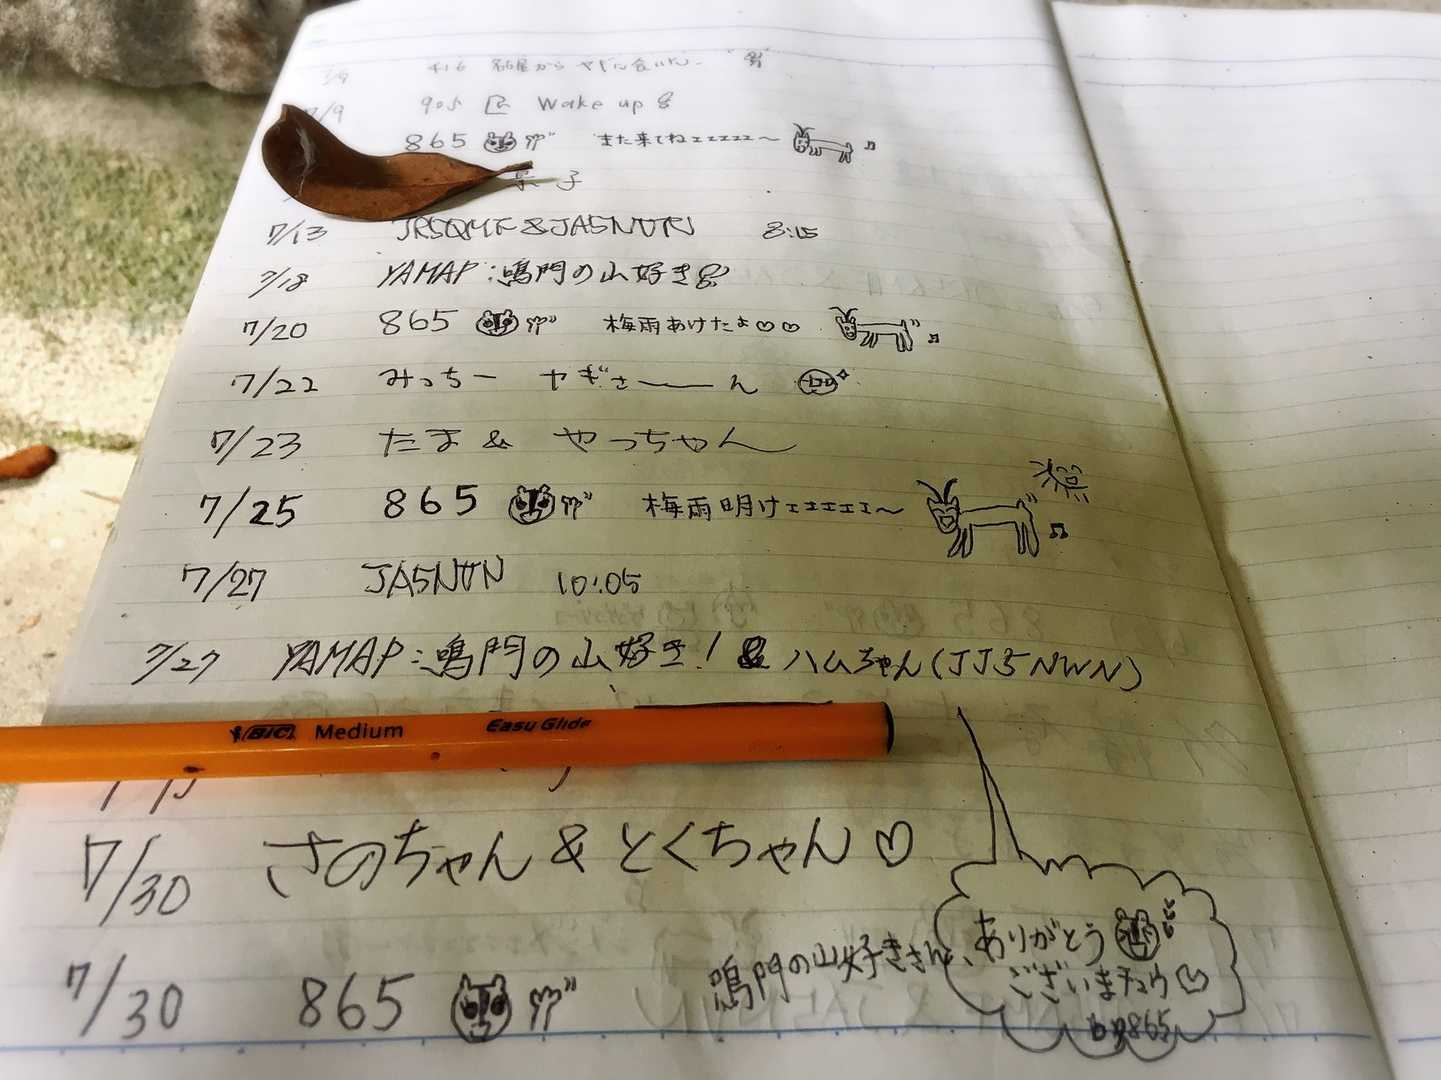 7/9 905 Wake up
865 また来てねエエエエエ〜
子
7/13 JR5QMF & JA5NVN 8:15
7/18 YAMAP:鳴門の山好き
7/20 865 梅雨あけたよ♡♡
7/22 みっちー ヤギさーーん
7/23 たま & やっちゃん
7/25 865 梅雨明けエエエエエ〜
7/27 JA5NVN 10:05
7/27 YAMAP:鳴門の山好き! & ハムちゃん(JJ5NWN)
BIC Medium Easy Glide
7/30 さのちゃん & とくちゃん♡
7/30 865 鳴門の山好きさん、ありがとう
ございまチュウ♡
by 865